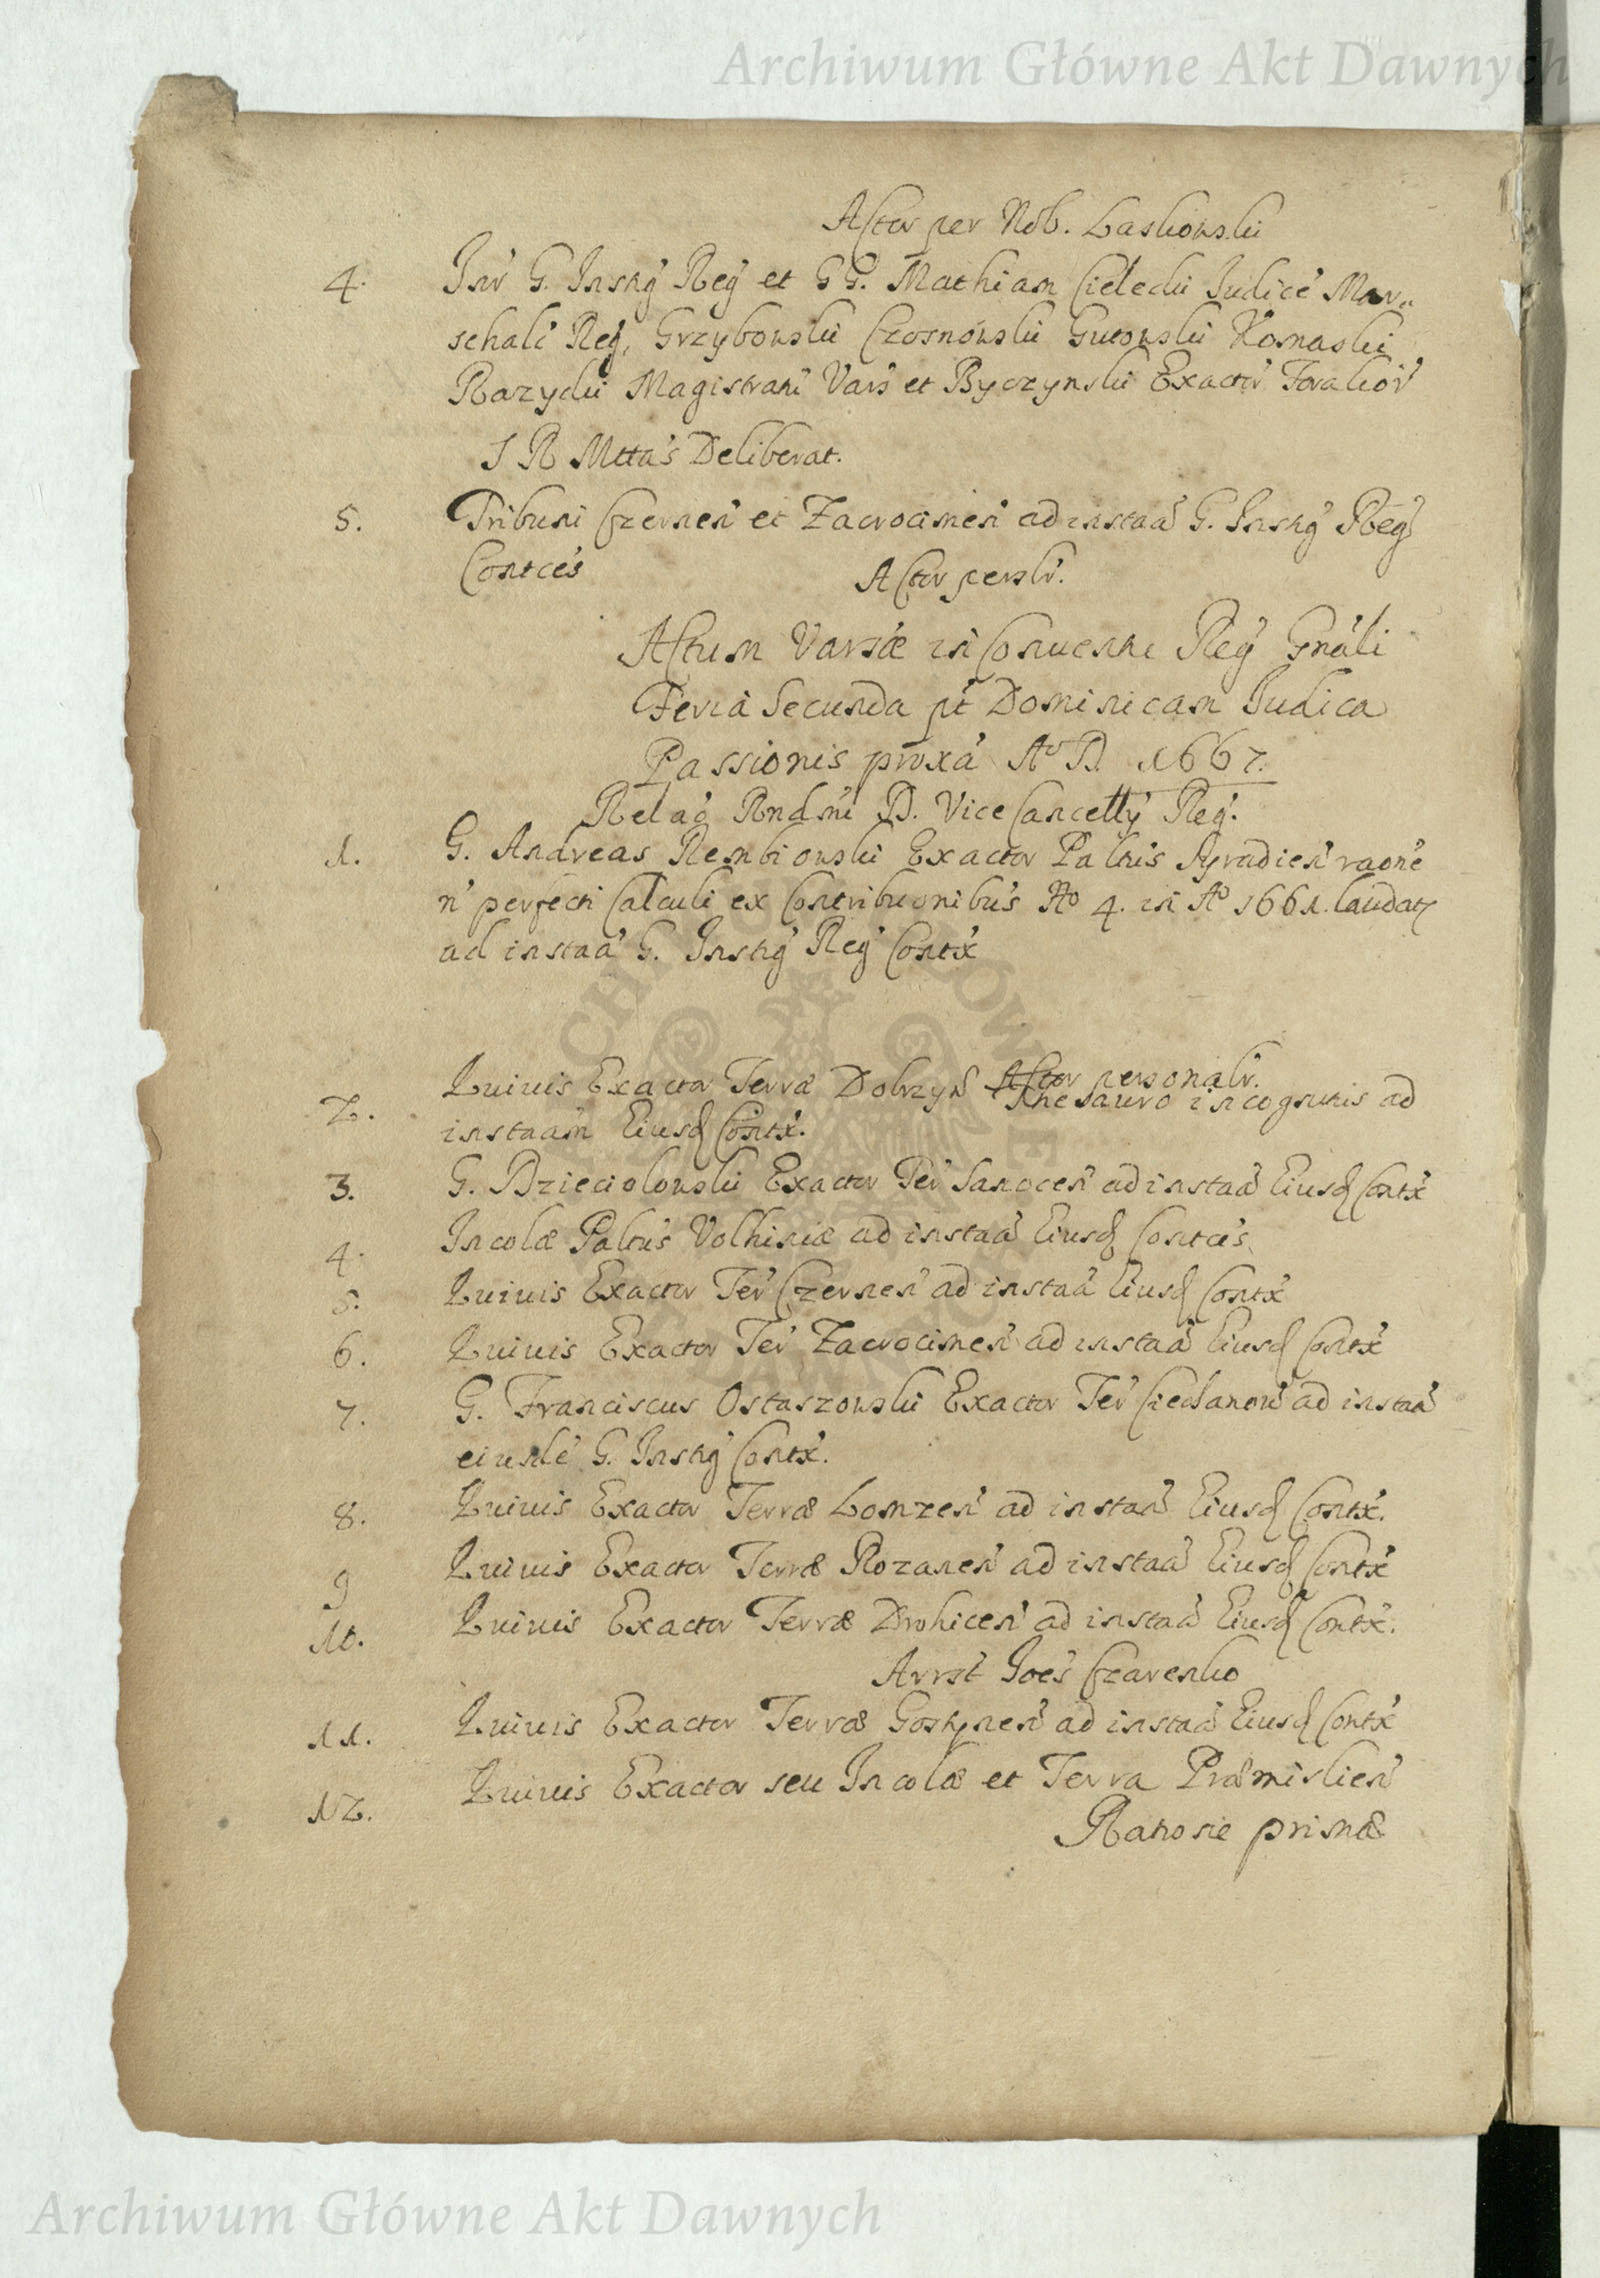 Archiwum Główne Akt Dawnych
Actor per Nob. Laskowski
4. Inr G. Instig Reg et GG. Mathiam Cieleckii Iudice Mar-
schalc Reg, Grzybowskii Czosnowskii Gutowskii
Magistratu Vars et Byczynskii Exactor
S R Mttas Deliberat.
5. Tribuni Czernen et Zacrocimen ad instaa G. Instig Reg
Contces Actor perslr.
Actum Varsæ in Conventu Reg Gnali
Feria Secunda pt Dominicam Iudica
Passionis proxa Ao D. 1667.
Relao Rndmi D. Vice Cancelly Reg.
1. G. Andreas Rembiowskii Exactor Paltus Syradien raone
n perfecti Calculi ex Contribuonibus No 4. in Ao 1661. laudatz
ad instaa G. Instig Reg Contx
Actor personalr.
2. Quivis Exactor Terræ Dobrzyn Thesauro incognitus ad
instaam Eiusd Contx.
3. G. Dzieciolowskii Exactor Ter Sanocen ad instaa Eiusd Contx
4. Incolæ Paltus Volhiniæ ad instaa Eiusd Contces
5. Quivis Exactor Ter Czernen ad instaa Eiusd Contx
6. Quivis Exactor Ter Zacrocimen ad instaa Eiusd Contx
7. G. Franciscus Ostaszowskii Exactor Ter Ciechanow ad instaa
eiusde G. Instig Contx.
8. Quivis Exactor Terræ Lomzen ad instaa Eiusd Contx.
9 Quivis Exactor Terræ Rozanen ad instaa Eiusd Contx
10. Quivis Exactor Terræ Drohicen ad instaa Eiusd Contx.
Arrst Joes Czarenko
11. Quivis Exactor Terræ Gostynen ad instaa Eiusd Contx
12. Quivis Exactor seu Incolæ et Terra Præmislien
Rationie primæ
Archiwum Główne Akt Dawnych